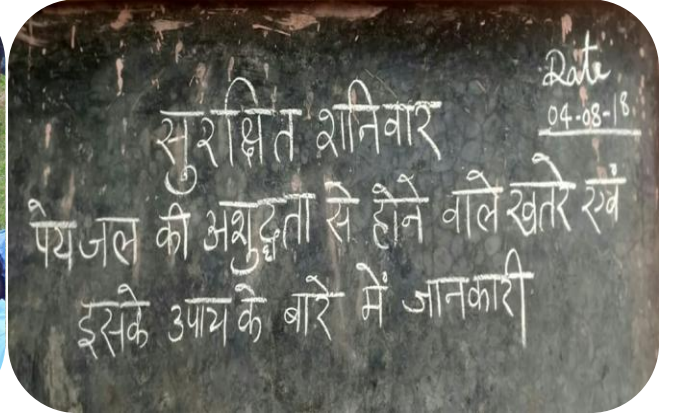 Date
04-08-18.
सुरक्षित शनिवार
पेयजल की अशुद्धता से होने वाले खतरे एवं
इसके उपाय के बारे में जानकारी